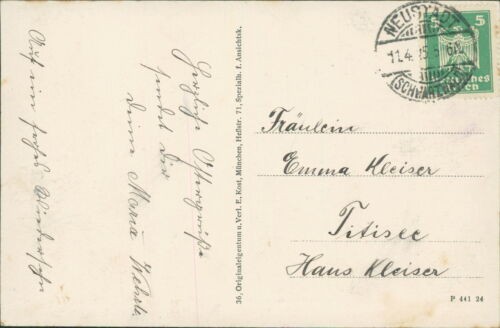 Herzliche Ostergrüße
sendet Dir
Deine Maria Wehrle
Auf ein frohes Wiedersehn
36, Originaleigentum u. Verl. E. Kost, München, Heßstr. 71, Spezialh. f. Ansichtsk.
NEUSTADT
11.4.25.
(SCHWARZWALD)
5
5
Fräulein
Emma Kleiser
Titisee
Haus Kleiser
P 441 24